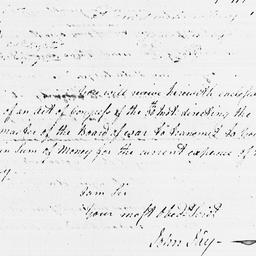 You will receive herewith enclosed
of an act of Congress of the 7th Inst. directing the
master of the Board of war to transmit to
Sum of Money for the current expence of
I am Sir
Your most Obed. Servt
John Jay